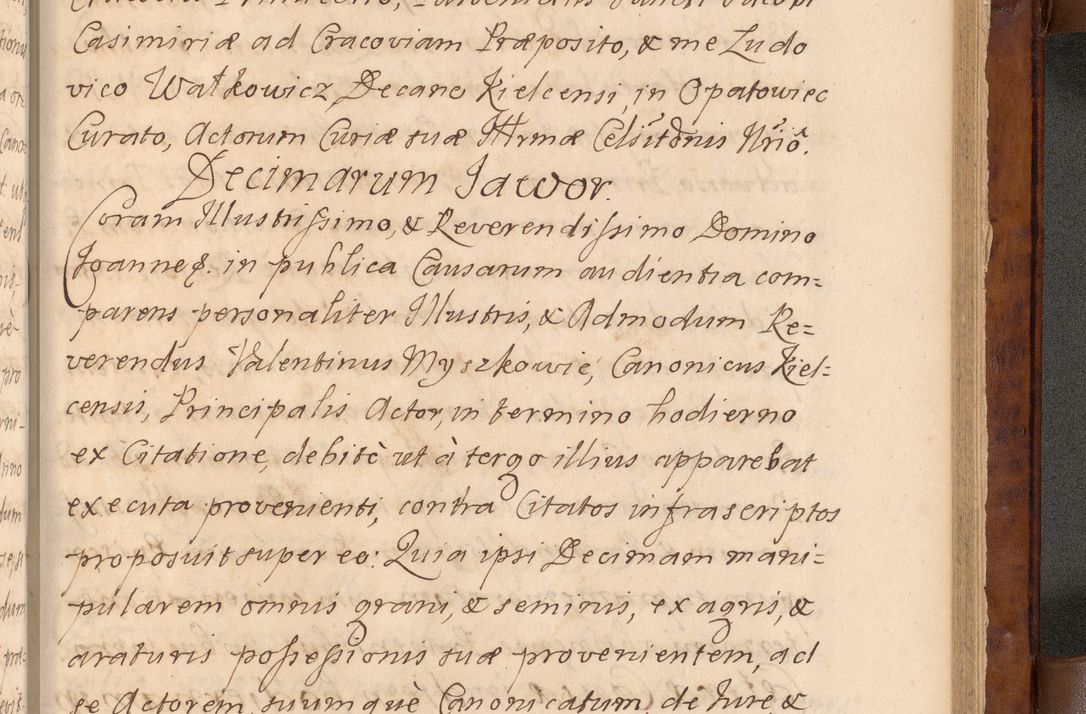 Casimiriæ ad Cracoviam Præposito, & me Ludo
vico Wałkowicz, Decano Kielcensi, in Opatowiec
Curato, Actorum Curiæ suæ Illrmæ Celsitdnis Nrio.
Decimarum Jawor.
Coram Illustrissimo, & Reverendissimo Domino
Joanne &. in publica Causarum audientia com=
parens personaliter Illustris, & Admodum Re=
verendus Valentinus Myszkowic, Canonicus Kiel=
censis, Principalis Actor, in termino hodierno
ex Citatione, debitè ut à tergo illius apparebat
executa provenienti, contra Citatos infrascriptos
proposuit super eo: Quia ipsi Decimam mani=
pularem omnis grani, & seminis, ex agris, &
araturis possessionis suæ provenientem, ad
se Actorem, suumquè Canonicatum, de Jure, &